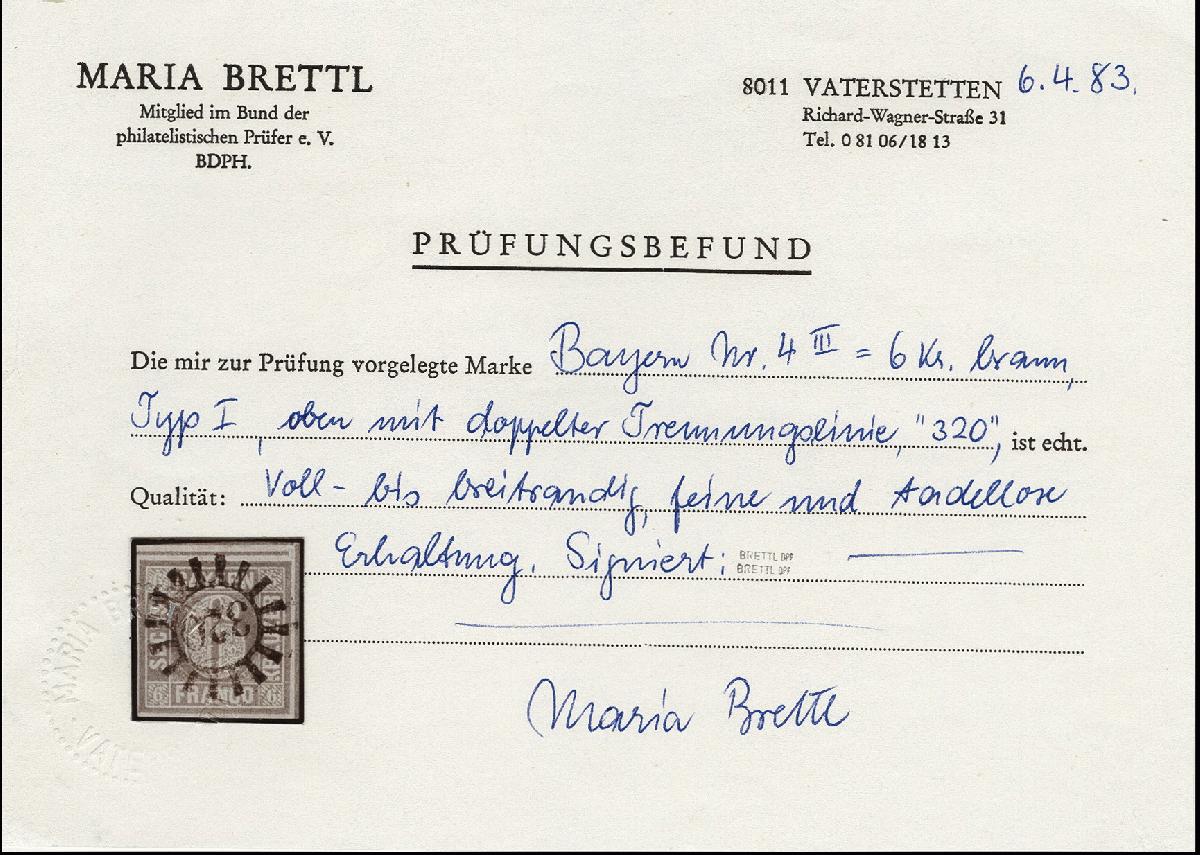 MARIA BRETTL
Mitglied im Bund der
philatelistischen Prüfer e. V.
BDPH.
8011 VATERSTETTEN 6.4.83.
Richard-Wagner-Straße 31
Tel. 0 81 06/18 13
PRÜFUNGSBEFUND
Die mir zur Prüfung vorgelegte Marke Bayern Nr. 4 III = 6 Kr. braun,
Typ I, oben mit doppelter Trennungslinie, "320", ist echt.
Qualität: Voll- bis breitrandig, feine und tadellose
Erhaltung. Signiert: BRETTL BPP
BRETTL BPP
320
FRANCO
6 6
MARIA
VATE
Maria Brettl